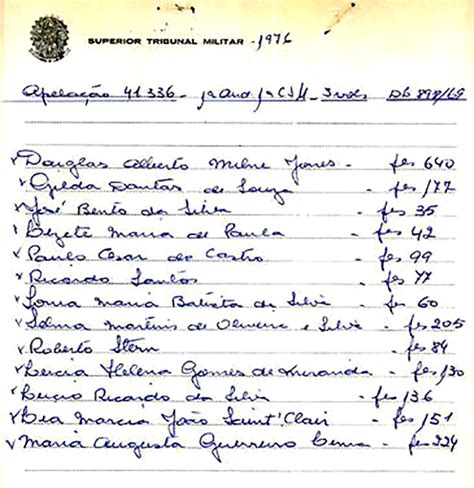 SUPERIOR TRIBUNAL MILITAR - 1976
Apelação 41 336 - 1ª Aud 1ª CJM - 3 vols Db 898/69
Douglas Alberto Milne Jones - fls 640
Gilda Dantas de Souza - fls 177
José Bento da Silva - fls 35
Maria de Paula - fls 42
Paulo Cesar de Castro - fls 99
Ricardo Santos - fls 77
Sonia Maria Batista da Silva - fls 60
Selma Martins de Oliveira e Silva - fls 205
Roberto Stern - fls 84
Helena Gomes de Miranda - fls 130
Ricardo da Silva - fls 136
Marcia João Saint'Clair - fls 151
Maria Augusta Guerreiro - fls 224